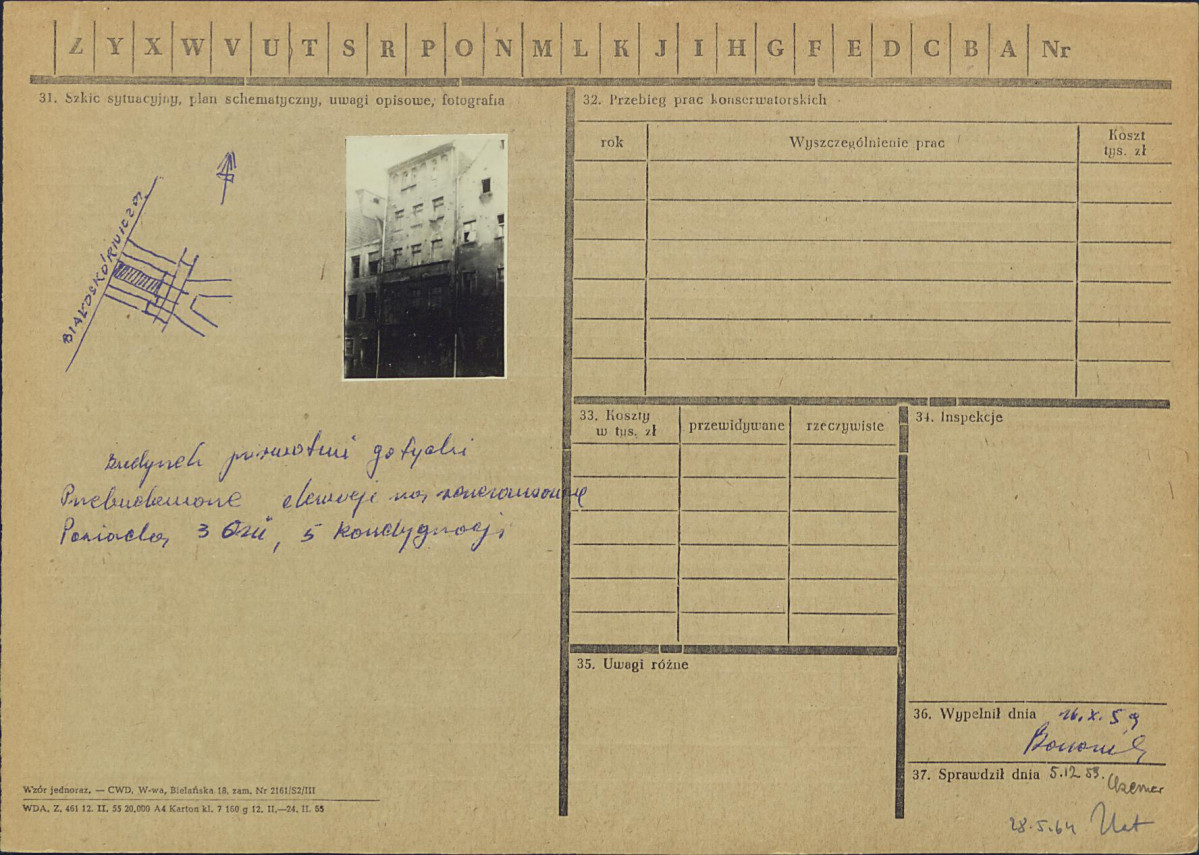 Z Y X W V U T S R P O N M Ł K J I H G F E D C B A Nr
31. Szkic sytuacyjny, plan schematyczny, uwagi opisowe, fotografia
BIAŁOSKÓRNICZA
Budynek pierwotnie gotycki
3 osie, 5 kondygnacji
32. Przebieg prac konserwatorskich
rok
Wyszczególnienie prac
Koszt
tys. zł
33. Koszty
w tys. zł
przewidywane
rzeczywiste
34. Inspekcje
35. Uwagi różne
36. Wypełnił dnia 16.X.59
37. Sprawdził dnia 5.12.59.
28.5.64
Wzór jednoraz. — CWD, W-wa, Bielańska 18, zam. Nr 2161/S2/III
WDA. Z. 461 12. II. 55 20,000 A4 Karton kl. 7 160 g 12. II.—24. II. 55